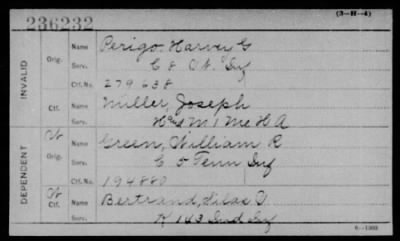 (3-H-4)
236232
INVALID
Orig.
Name Perigo Harvey G
Serv. C 8 Inf
Ctf. No. 279638
Ctf.
Name Miller, Joseph
Serv. M 1 Me H A
DEPENDENT
W
Orig.
Name Green, William R
Serv. C 5 Tenn Inf
Ctf. No. 194880
W
Ctf.
Name Bertrand, Silas O
Serv. K 143 Ind Inf